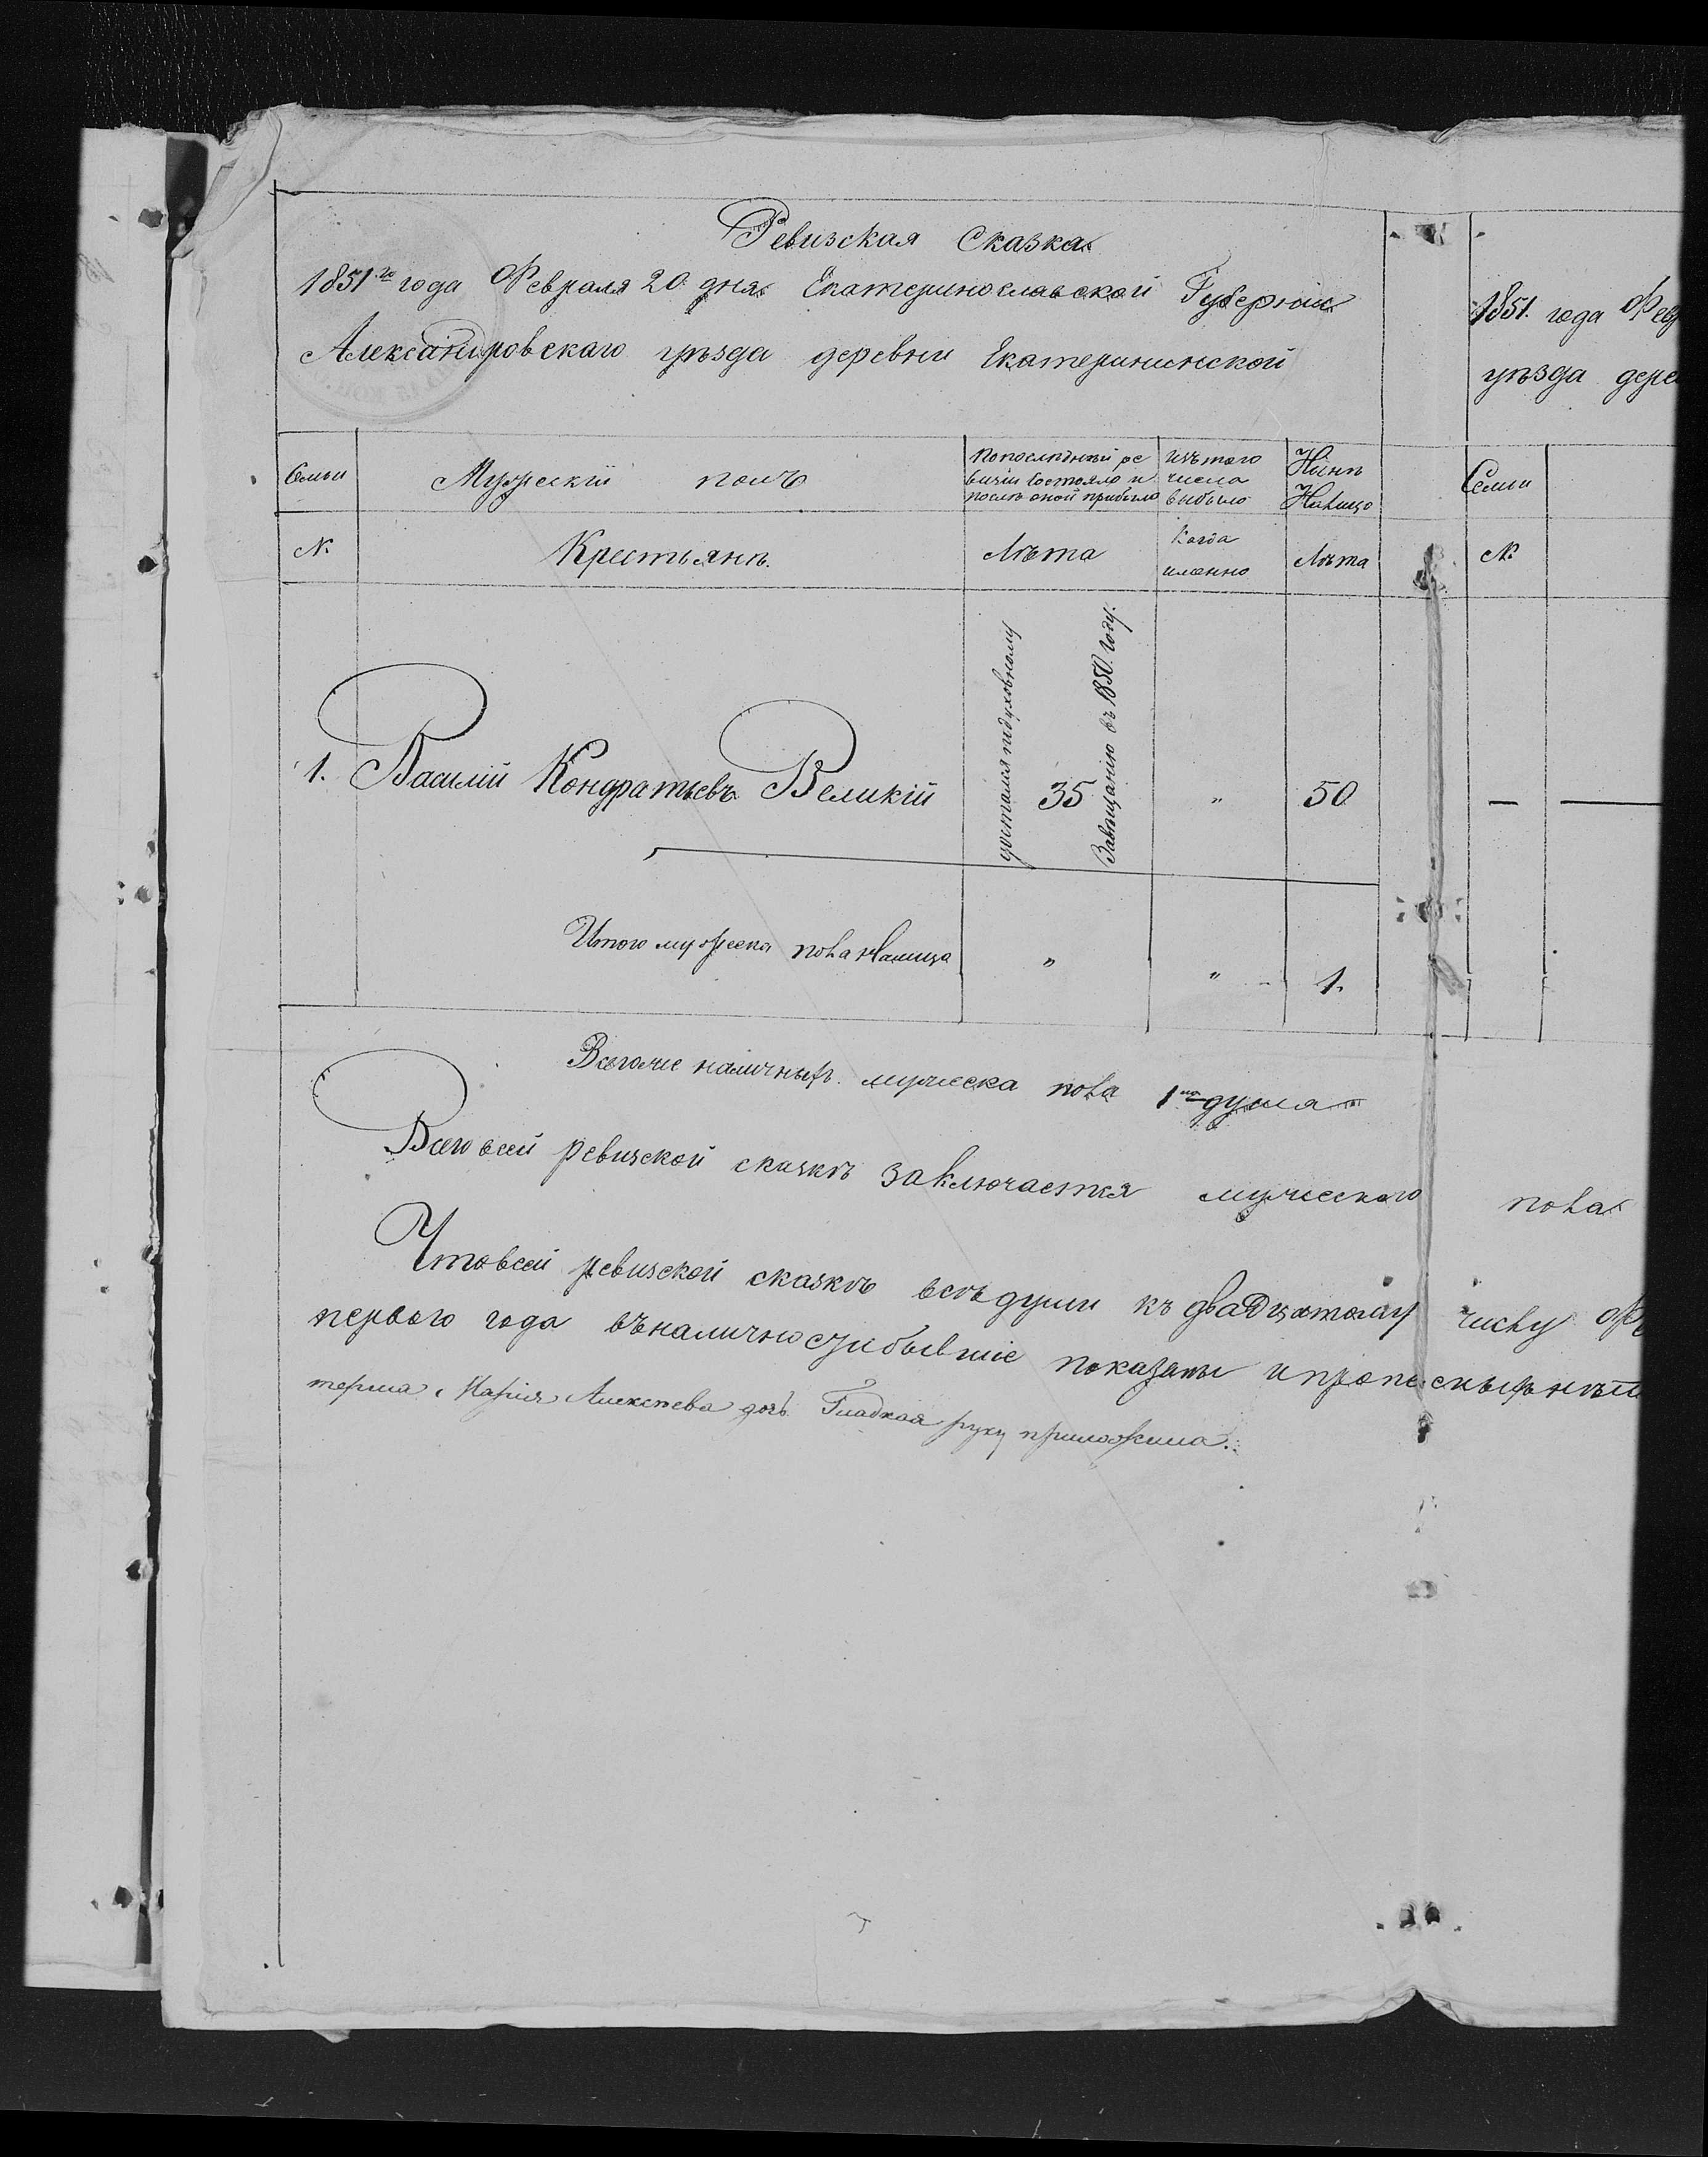 Ревизская Сказка
1851го года Февраля 20 дня Екатеринославской Губернiи
Александровскаго уѣзда деревни Екатерининской
Семьи
Мужескiй полъ
По последней ре
визiи состояло и
послѣ оной прибыло
изъ того
числа
выбыло
Нынѣ
Налицо
№
Крестьянъ.
Лѣта
Когда
именно
Лѣта
1. Василiй Кондратьевъ Великiй
достался по духовному
35
Завещанiю въ 1850. году.
"
50
Итого мужеска пола налицо
"
"
1.
Всегоже наличныхъ мужеска пола 1на душа
Всего в сей ревизской сказкѣ заключается мужескаго пола
Что в сей ревизской сказкѣ всѣ души къ двадцатому числу
первого года въ наличности бывшiе показаны и прописныхъ нѣтъ
Марiя Алексеева дочь Гладкая руку приложила.
1851. года Фев
уѣзда дере
Семьи
№